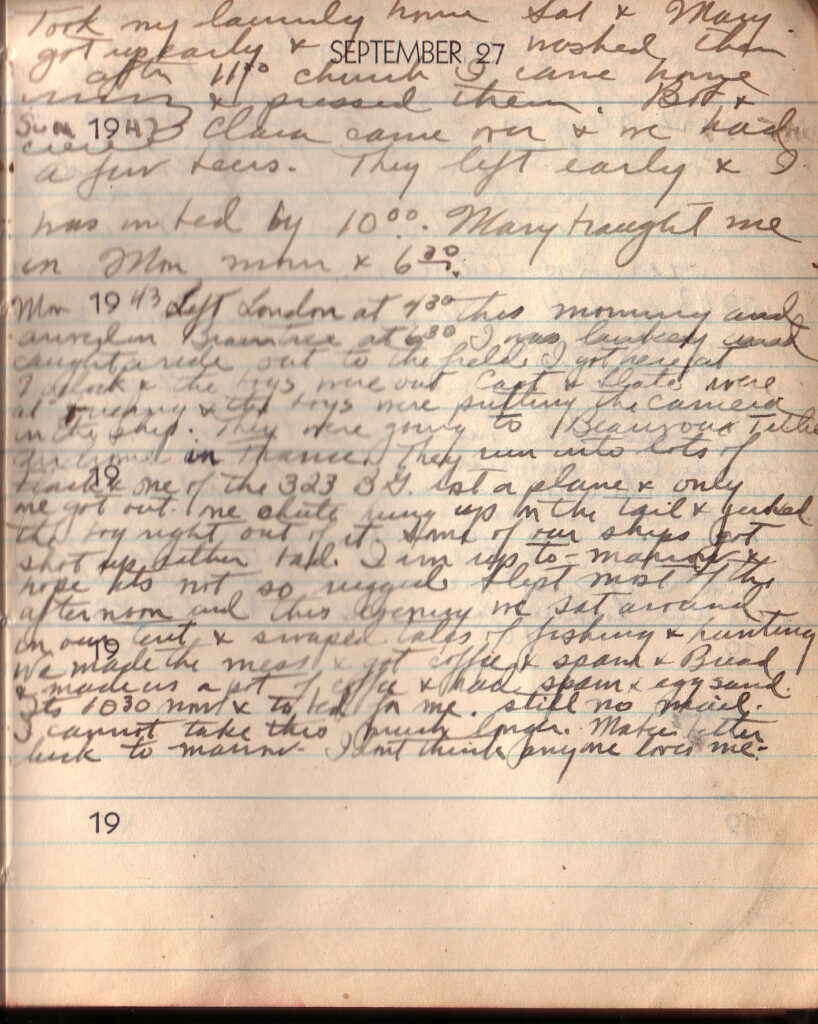 Took my laundry home Sat & Mary
got up early & washed them
SEPTEMBER 27
after 11⁰⁰ church I came home
& pressed them. Bob &
Sun 1943 Clara came over & we had
a few beers. They left early & I
was in bed by 10⁰⁰. Mary brought me
in Mon morn & 6³⁰.
Mon 1943 Left London at 4³⁰ this morning and
arrived in Braintree at 6³⁰ I was lucky and
caught a ride out to the field. I got here at
7 oclock & the boys were out. Capt & were
at & the boys were putting the camera
in the ship. They were going to Beauvais Tille
in France. They run into lots of
19
flack & one of the 323 B.G. lost a plane & only
one got out. One chute hung up on the tail & jerked
the boy right out of it. Some of our ships got
shot up rather bad. I am up to-morrow &
hope its not so rugged. Slept most of the
afternoon and this evening we sat around
in our tent & swaped tales of fishing & hunting
19
We made the mess & got coffee & spam & Bread
& made us a pot of coffee & had spam & egg sand.
Its 1030 now & to bed for me. still no mail.
I cannot take this much longer. better
luck to-marrow. I dont think anyone loves me.
19